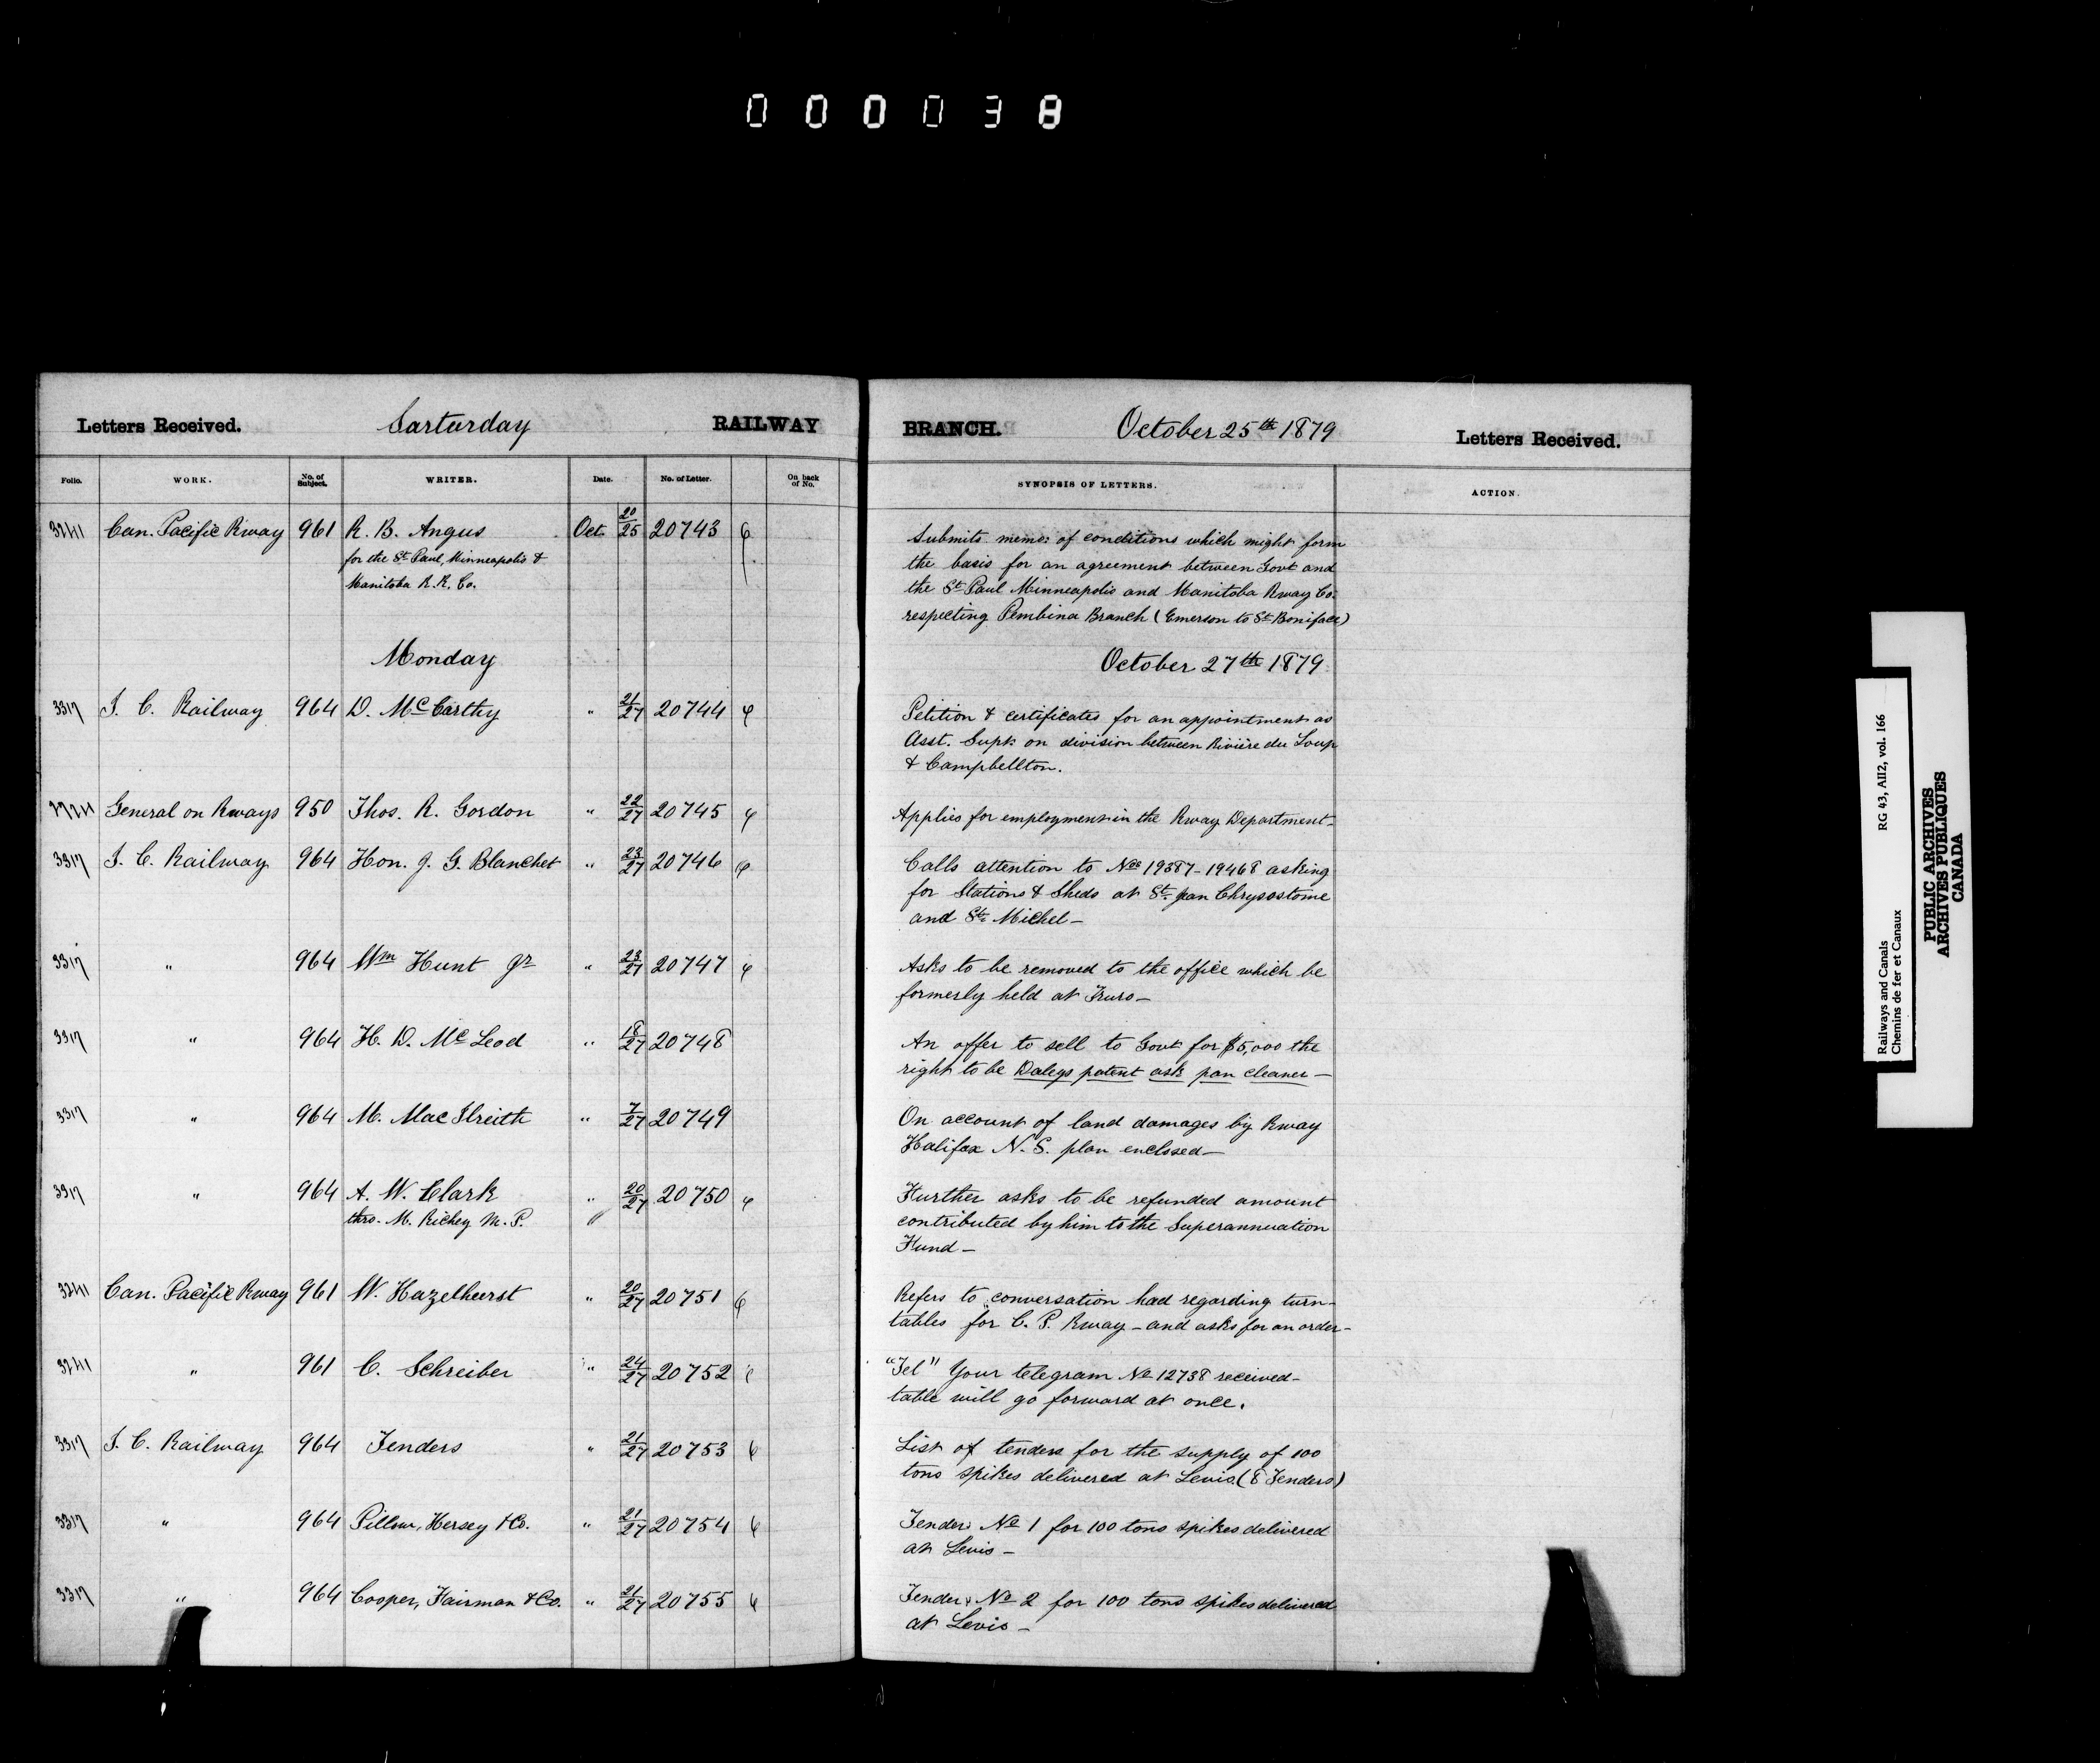 000038
Letters Received. Sarturday RAILWAY BRANCH. October 25th 1879 Letters Received.
Folio. WORK. No. of Subject. WRITER. Date. No. of Letter. On back of No. SYNOPSIS OF LETTERS. ACTION.
3241 Can. Pacific Rway 961 R. B. Angus Oct. 20/25 20743 Submits memo: of conditions which might form
for the St Paul, Minneapolis & the basis for an agreement between Govt and
Manitoba R. R. Co. the St Paul Minneapolis and Manitoba Rway Co.
respecting Pembina Branch (Emerson to St Boniface)
Monday October 27th 1879
3317 I. C. Railway 964 D. McCarthy " 21/27 20744 Petition & certificates for an appointment as
Asst. Supt: on division between Rivière du Loup
& Campbellton.
General on Rways 950 Thos. R. Gordon " 22/27 20745 Applies for employment in the Rway Department-
3317 I. C. Railway 964 Hon. J. G. Blanchet " 23/27 20746 Calls attention to Nos 19387-19468 asking
for Stations & Sheds at St. Jean Chrysostome
and St. Michel-
3317 " 964 Wm Hunt Jr " 23/27 20747 Asks to be removed to the office which he
formerly held at Truro-
3317 " 964 H. D. McLeod " 18/27 20748 An offer to sell to Govt for $5,000 the
right to be Daleys patent ash pan cleaner-
3317 " 964 M. MacIlreith " 7/27 20749 On account of land damages by Rway
Halifax N. S. plan enclosed-
3317 " 964 A. W. Clark " 20/27 20750 Further asks to be refunded amount
thro. M. Richey M. P. contributed by him to the Superannuation
Fund-
3241 Can. Pacific Rway 961 W. Hazelhurst " 20/27 20751 Refers to conversation had regarding turn-
tables for C. P. Rway - and asks for an order-
3241 " 961 C. Schreiber " 24/27 20752 "Tel" Your telegram No 12738 received-
table will go forward at once.
3317 I. C. Railway 964 Tenders " 21/27 20753 List of tenders for the supply of 100
tons spikes delivered at Levis (8 Tenders)
3317 " 964 Pillow, Hersey & Co. " 21/27 20754 Tender No 1 for 100 tons spikes delivered
at Levis-
3317 " 964 Cooper, Fairman & Co. " 21/27 20755 Tender No 2 for 100 tons spikes delivered
at Levis-
Railways and Canals RG 43, AII2, vol. 166
Chemins de fer et Canaux
PUBLIC ARCHIVES
ARCHIVES PUBLIQUES
CANADA